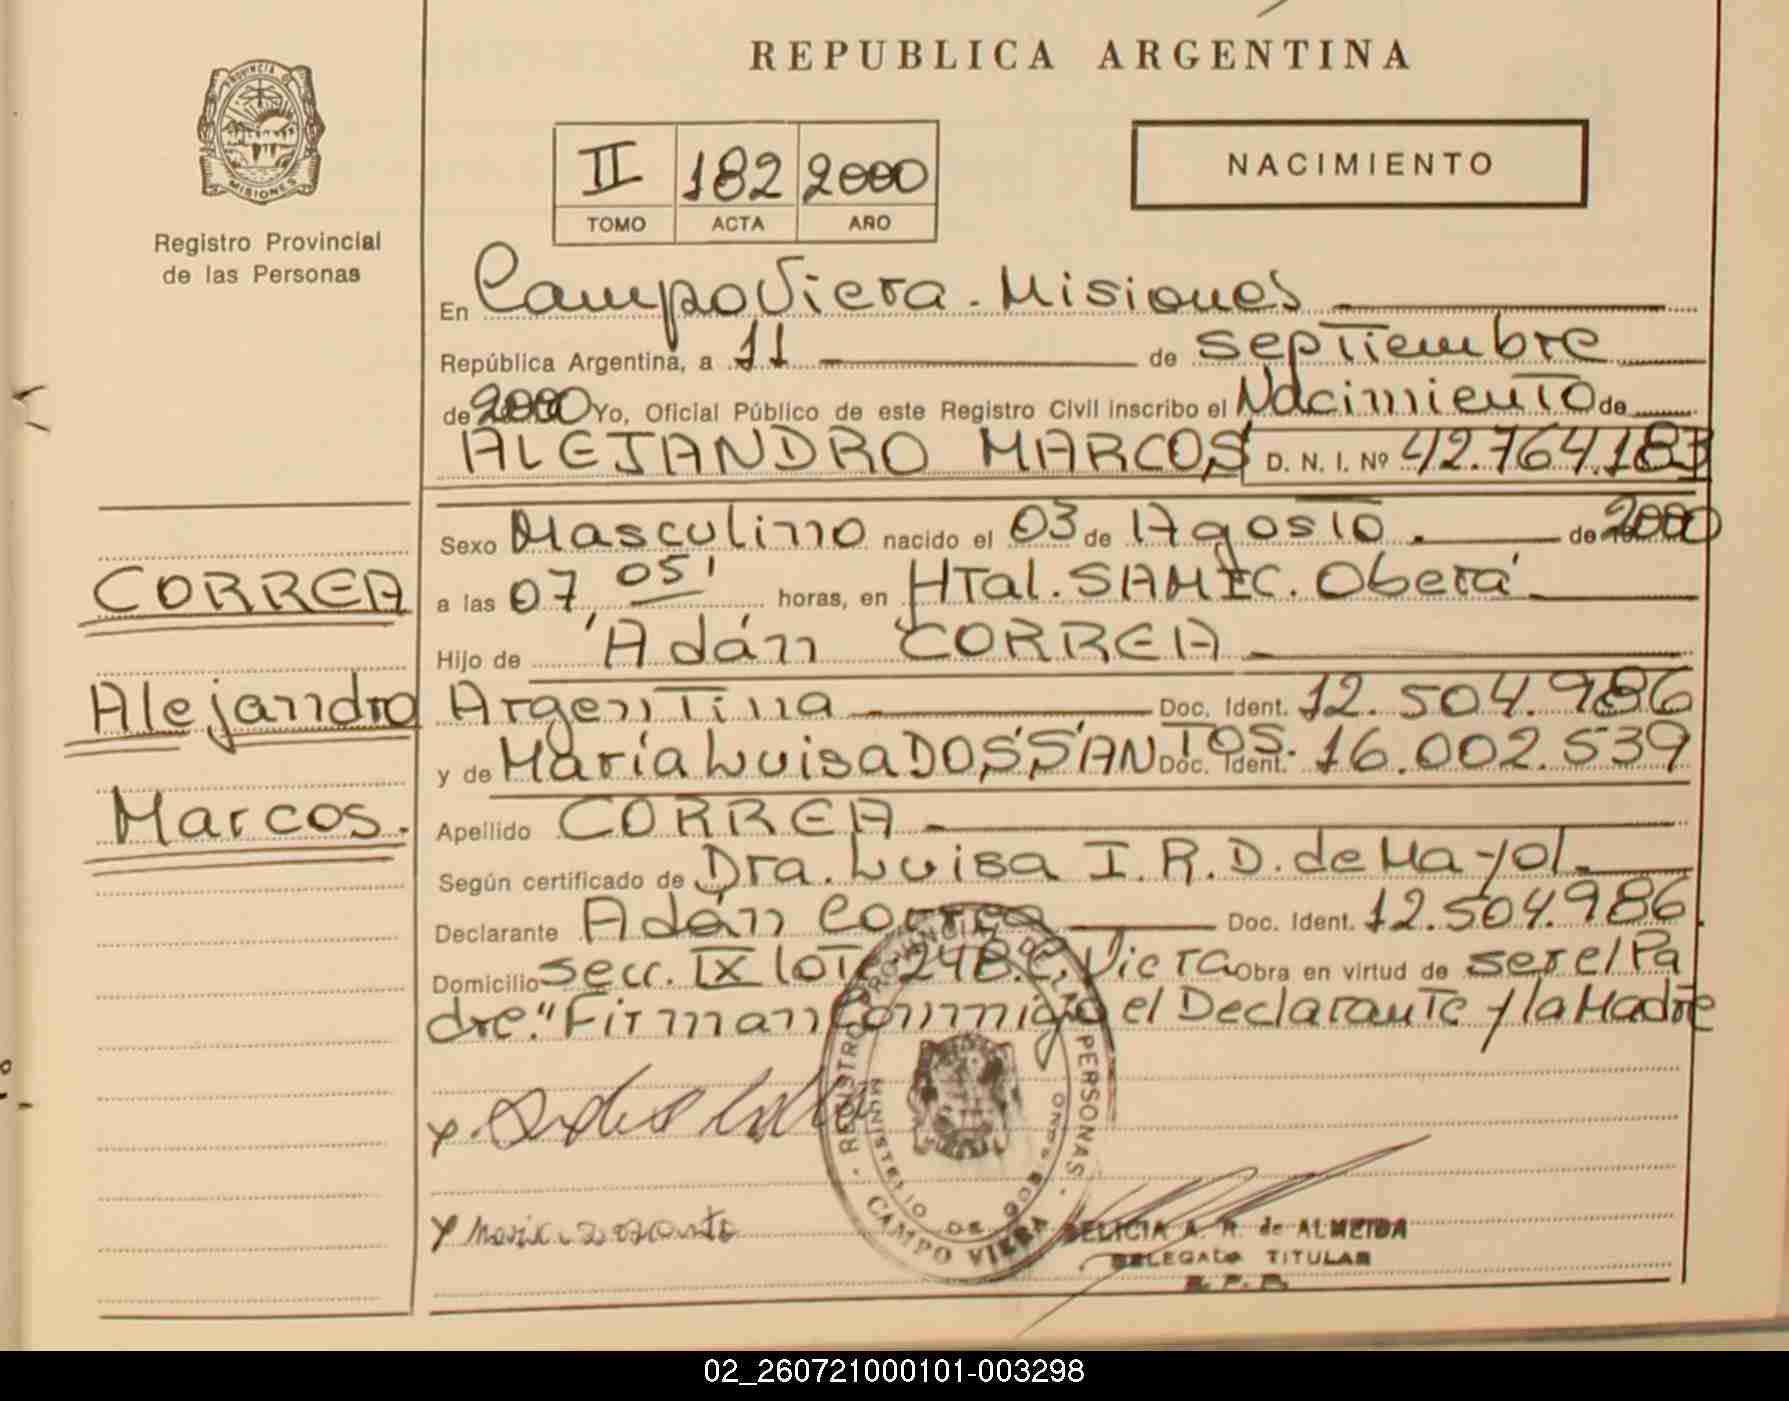 REPUBLICA ARGENTINA
PROVINCIA DE
MISIONES
Registro Provincial
de las Personas
II 182 2000
TOMO ACTA AÑO
NACIMIENTO
En Campo Viera - Misiones
República Argentina, a 11 de septiembre
de 2000 Yo, Oficial Público de este Registro Civil inscribo el Nacimiento de
ALEJANDRO MARCOS D. N. I. Nº 42.764.183
Sexo Masculino nacido el 03 de Agosto de 2000
a las 07, 05' horas, en Htal. SAMIC. Oberá
Hijo de Adán CORREA
Argentina Doc. Ident. 12.504.986
y de María Luisa DOS SANTOS. Doc. Ident. 16.002.539
Apellido CORREA
Según certificado de Dra. Luisa I. R. D. de Mayol
Declarante Adán Correa Doc. Ident. 12.504.986
Domicilio secc. IX lote 248. C. Viera Obra en virtud de ser el Pa
dre." Firman Conmigo el Declarante y la Madre
CORREA
Alejandro
Marcos.
REGISTRO PROVINCIAL DE LAS PERSONAS
MINISTERIO DE GOB
CAMPO VIERA
DELICIA A. R. de ALMEIDA
DELEGADO TITULAR
R. P. P.
02_260721000101-003298